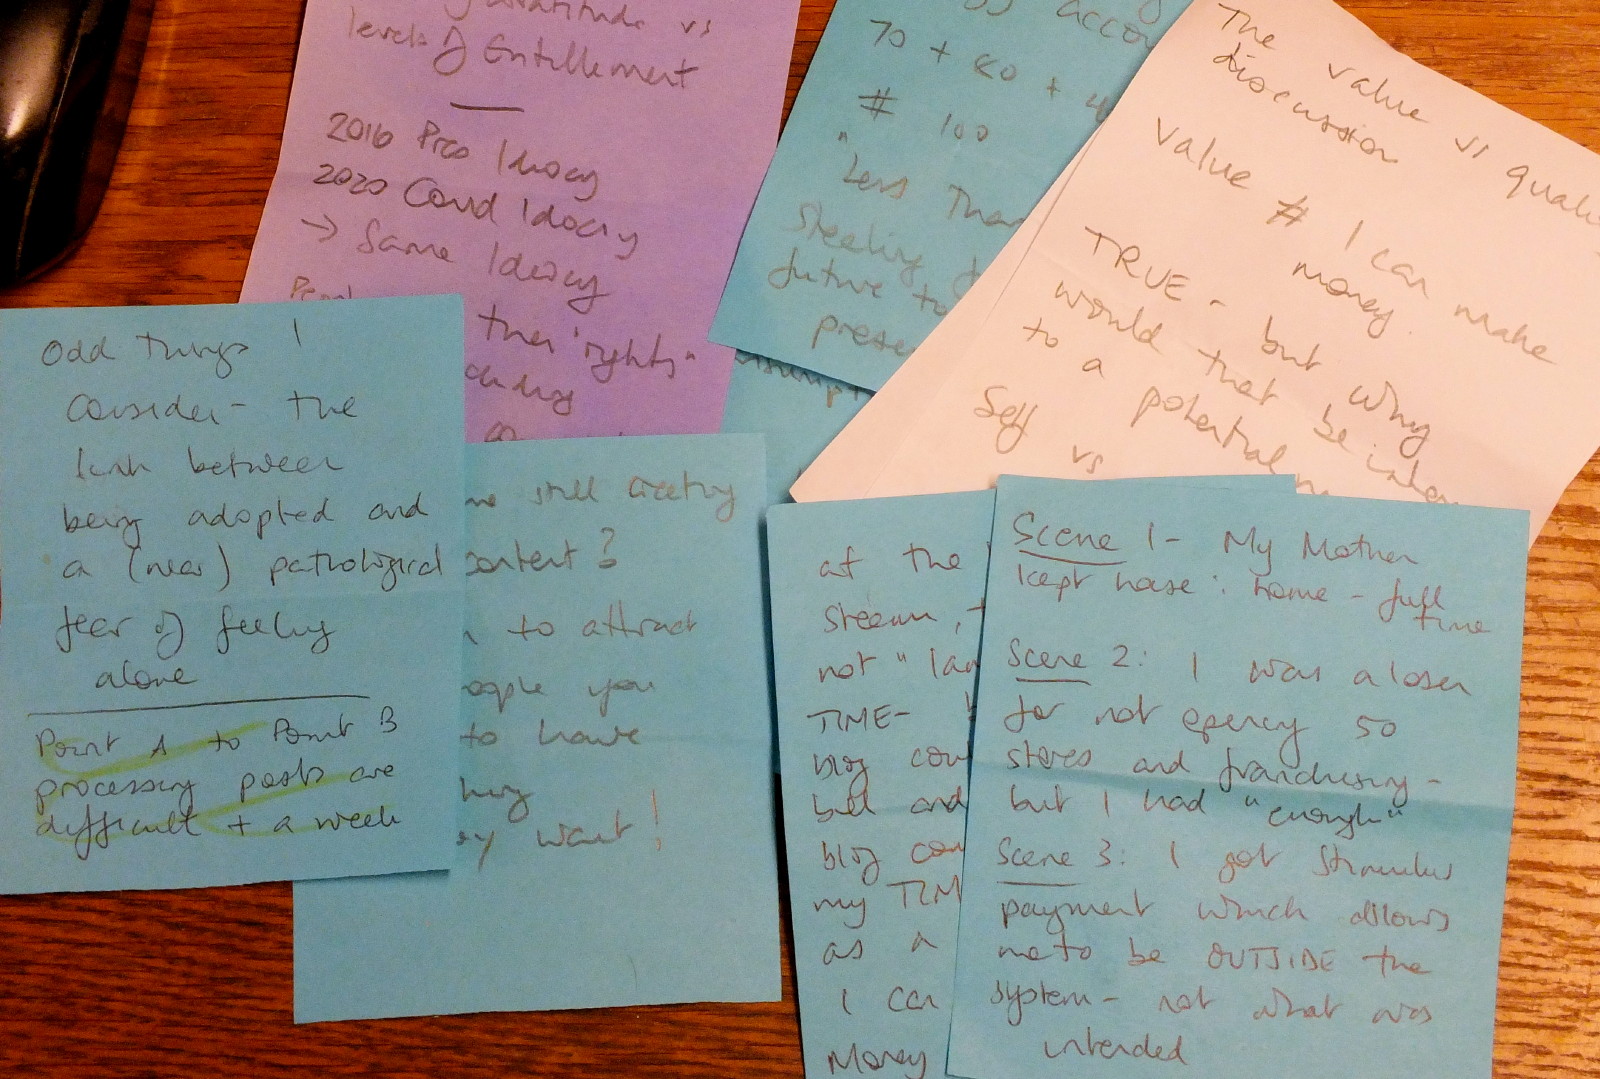 gratitude vs
levels of Entitlement
2016 Pres Idiocy
2020 Covid Idiocy
→ Same Idiocy
their "rights"
accou
70 + 80 + 4
# 100
"Less Than
Steeling
future to
prese
The value vs quali
discussion
Value # I can make
money.
TRUE - but why
would that be inter
to a potential
Self vs
Odd Things 1
Consider - the
link between
being adopted and
a (near) pathological
fear of feeling
alone
Point A to Point B
processing posts are
difficult + a week
still creating
content?
to attract
people you
to have
want!
at the
steam,
not "lan
TIME-
blog con
but and
blog con
my TIM
as a
I can
Money
Scene 1 - My Mother
kept house: home - full
time
Scene 2: I was a loser
for not opening 50
stores and franchising -
but I had "enough"
Scene 3: I got Stimulus
payment which allows
me to be OUTSIDE the
system - not what was
intended